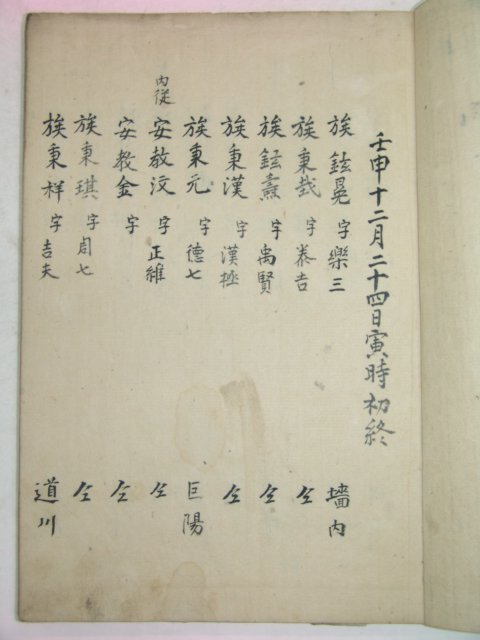 壬申十二月二十四日寅時初終
族鉉晃 字樂三 墻內
族秉哉 字泰吉 仝
族鉉熹 字禹賢 仝
族秉漢 字漢極 仝
族秉元 字德七 巨陽
內從 安教汶 字正維 仝
安教金 字 仝
族秉琪 字周七 仝
族秉祥 字吉夫 道川